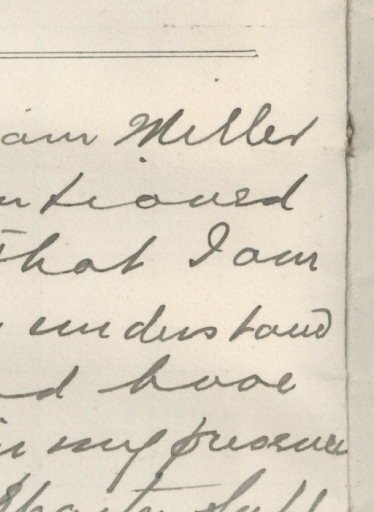 iam Miller
ntioned
that I am
understand
nd have
in my presence